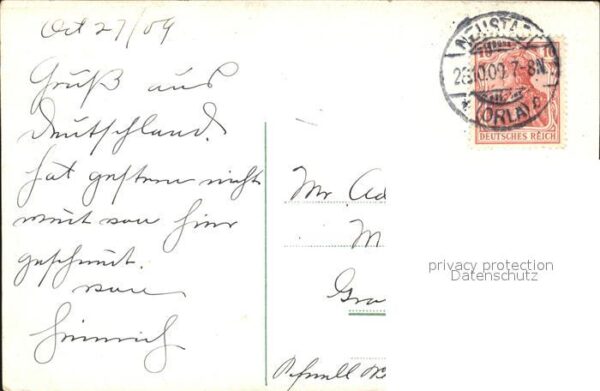 Oct 27/09
Gruß aus
Deutschland.
hat gestern nicht
weit von hier
geschneit.
von
Heinrich
NEUSTADT
28.10.09.7-8N.
(ORLA)
10
DEUTSCHES REICH
Mr Ad
M
Gra
privacy protection
Datenschutz